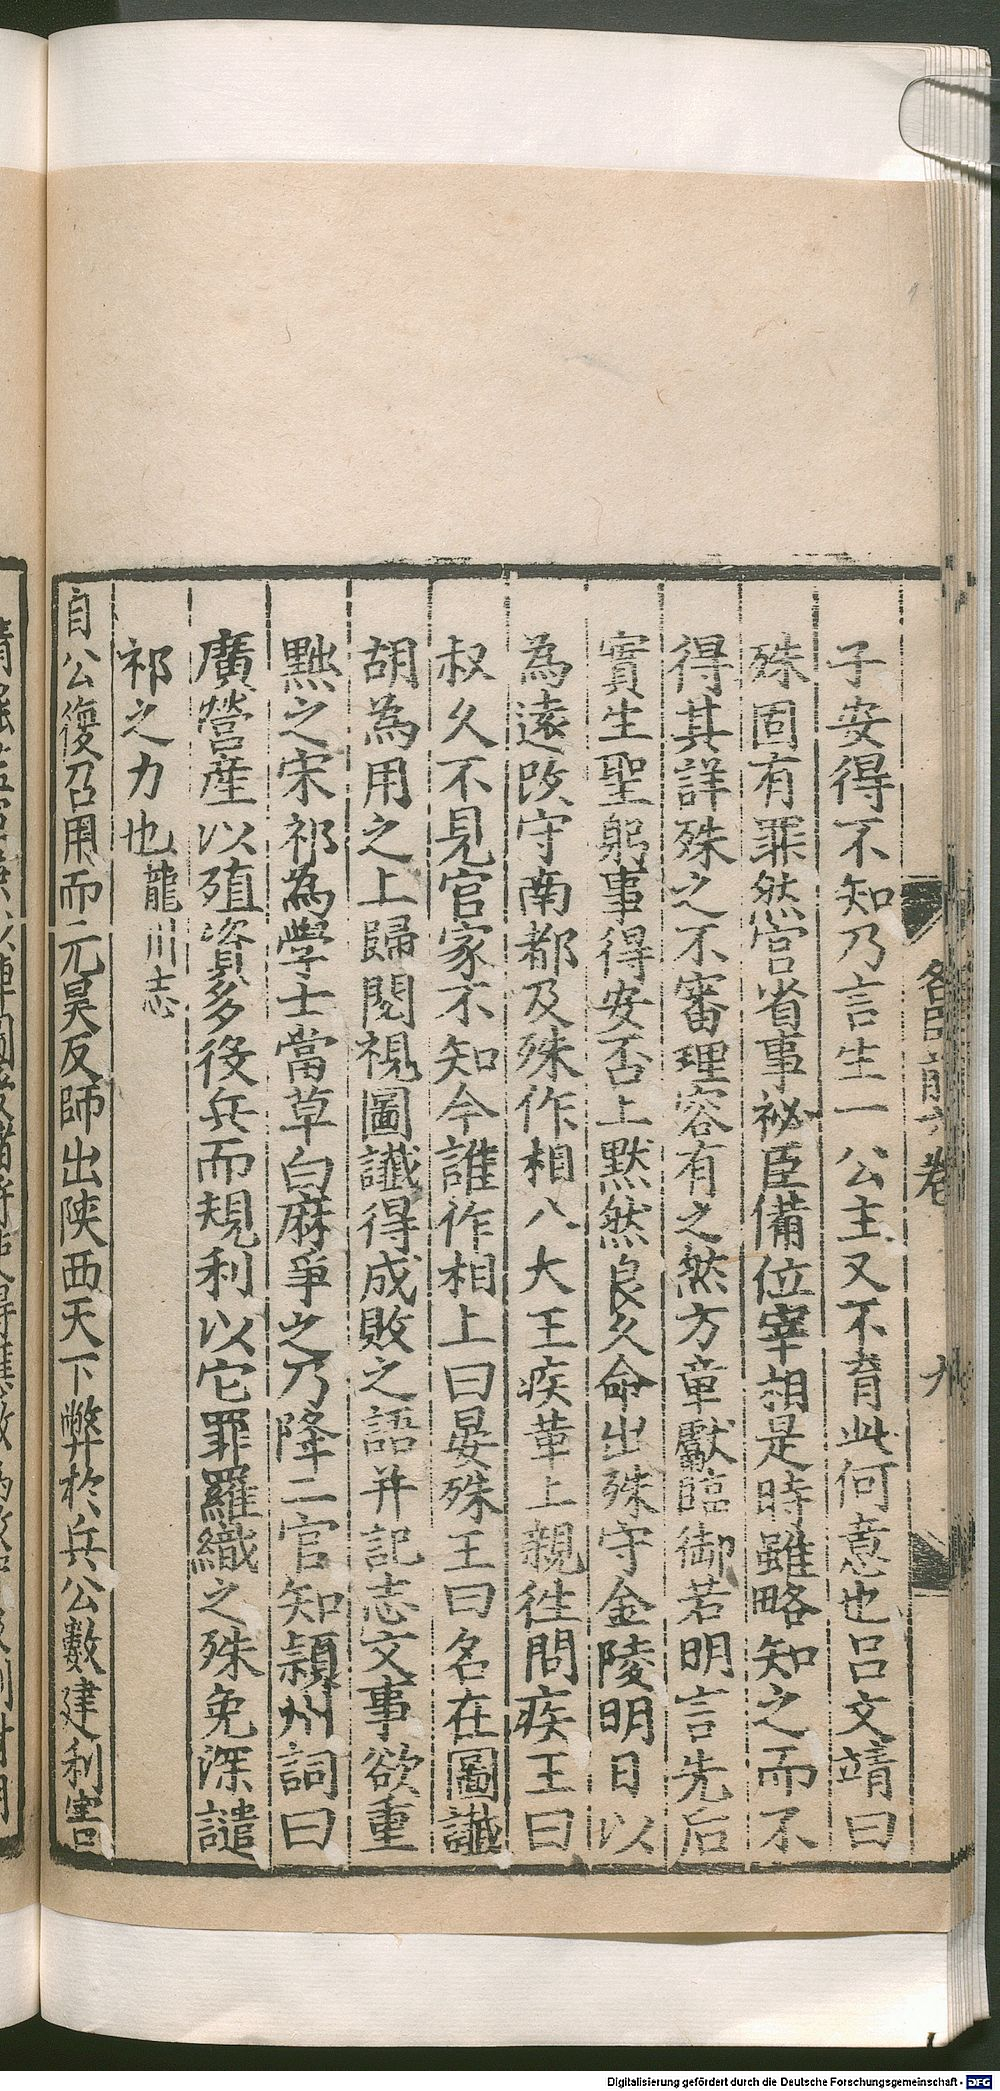 子安得不知乃言生一公主又不育此何意也吕文靖曰
殊固有罪然宫省事祕臣備位宰相是時雖略知之而不
得其詳殊之不審理容有之然方章獻臨御若明言先后
實生聖躬事得安否上默然良久命出殊守金陵明日以
為遠改守南都及殊作相八大王疾革上親徃問疾王曰
叔久不見官家不知今誰作相上曰晏殊王曰名在圖讖
胡為用之上歸閱視圖讖得成敗之語并記志文事欲重
黜之宋祁為學士當草白麻爭之乃降二官知潁州詞曰
廣營産以殖資多役兵而規利以它罪羅織之殊免深譴
祁之力也龍川志
自公復召用而元昊反師出陝西天下弊於兵公數建利害
Digitalisierung gefördert durch die Deutsche Forschungsgemeinschaft - DFG